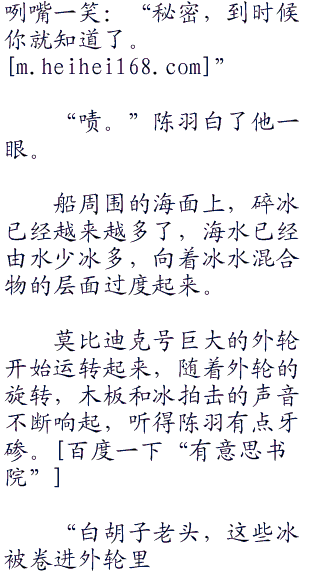 咧嘴一笑：“秘密，到时候
你就知道了。
[m.heihei168.com]”
“啧。”陈羽白了他一
眼。
船周围的海面上，碎冰
已经越来越多了，海水已经
由水少冰多，向着冰水混合
物的层面过度起来。
莫比迪克号巨大的外轮
开始运转起来，随着外轮的
旋转，木板和冰拍击的声音
不断响起，听得陈羽有点牙
碜。[百度一下“有意思书
院”]
“白胡子老头，这些冰
被卷进外轮里